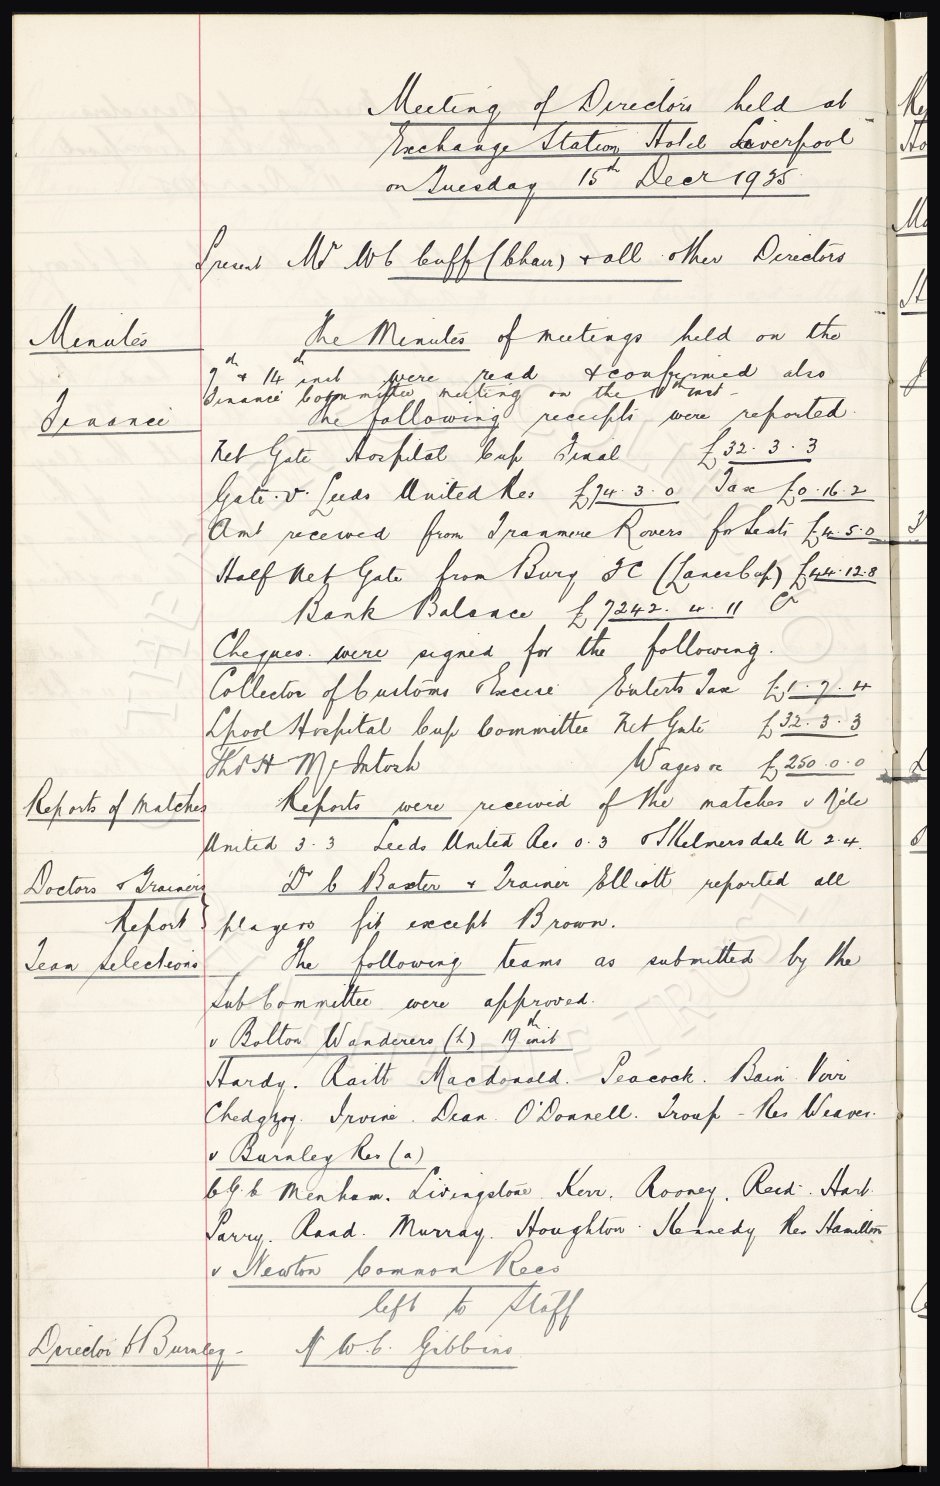 Meeting of Directors held at
Exchange Station Hotel Liverpool
on Tuesday 15th Decr 1925
Present Mr W C Cuff (Chair) & all other Directors
Minutes The Minutes of meetings held on the
7th & 14th inst were read & confirmed also
Finance Committee meeting on the inst -
Finance The following receipts were reported.
Net Gate Hospital Cup Final £32. 3. 3
Gate. v. Leeds United Res £74. 3. 0 Tax £0. 16. 2
Amt received from Tranmere Rovers for Seats £4. 5. 0
Half Net Gate from Bury FC (Lancs Cup) £44. 12. 8
Bank Balance £7242. 4. 11 Cr
Cheques were signed for the following.
Collector of Customs & Excise Enterts Tax £1. 7. 4
Lpool Hospital Cup Committee Net Gate £32. 3. 3
Thos H McIntosh Wages &c £250. 0. 0
Reports of Matches Reports were received of the matches v N'cle
United 3. 3 Leeds United Res 0. 3 & Skelmersdale U 2. 4.
Doctors & Trainers Dr C Baxter & Trainer Elliott reported all
Report players fit except Brown.
Team Selections The following teams as submitted by the
Sub Committee were approved.
v Bolton Wanderers (h) 19th inst
Hardy. Raitt Macdonald. Peacock. Bain. Virr
Chedgzoy. Irvine. Dean. O'Donnell. Troup - Res Weaver.
v Burnley Res (a)
C G C Menham. Livingstone. Kerr. Rooney. Reid. Hart.
Parry. Rand. Murray. Houghton. Kennedy Res Hamilton
v Newton Common Recs
left to Staff
Director to Burnley - Mr W. C. Gibbins